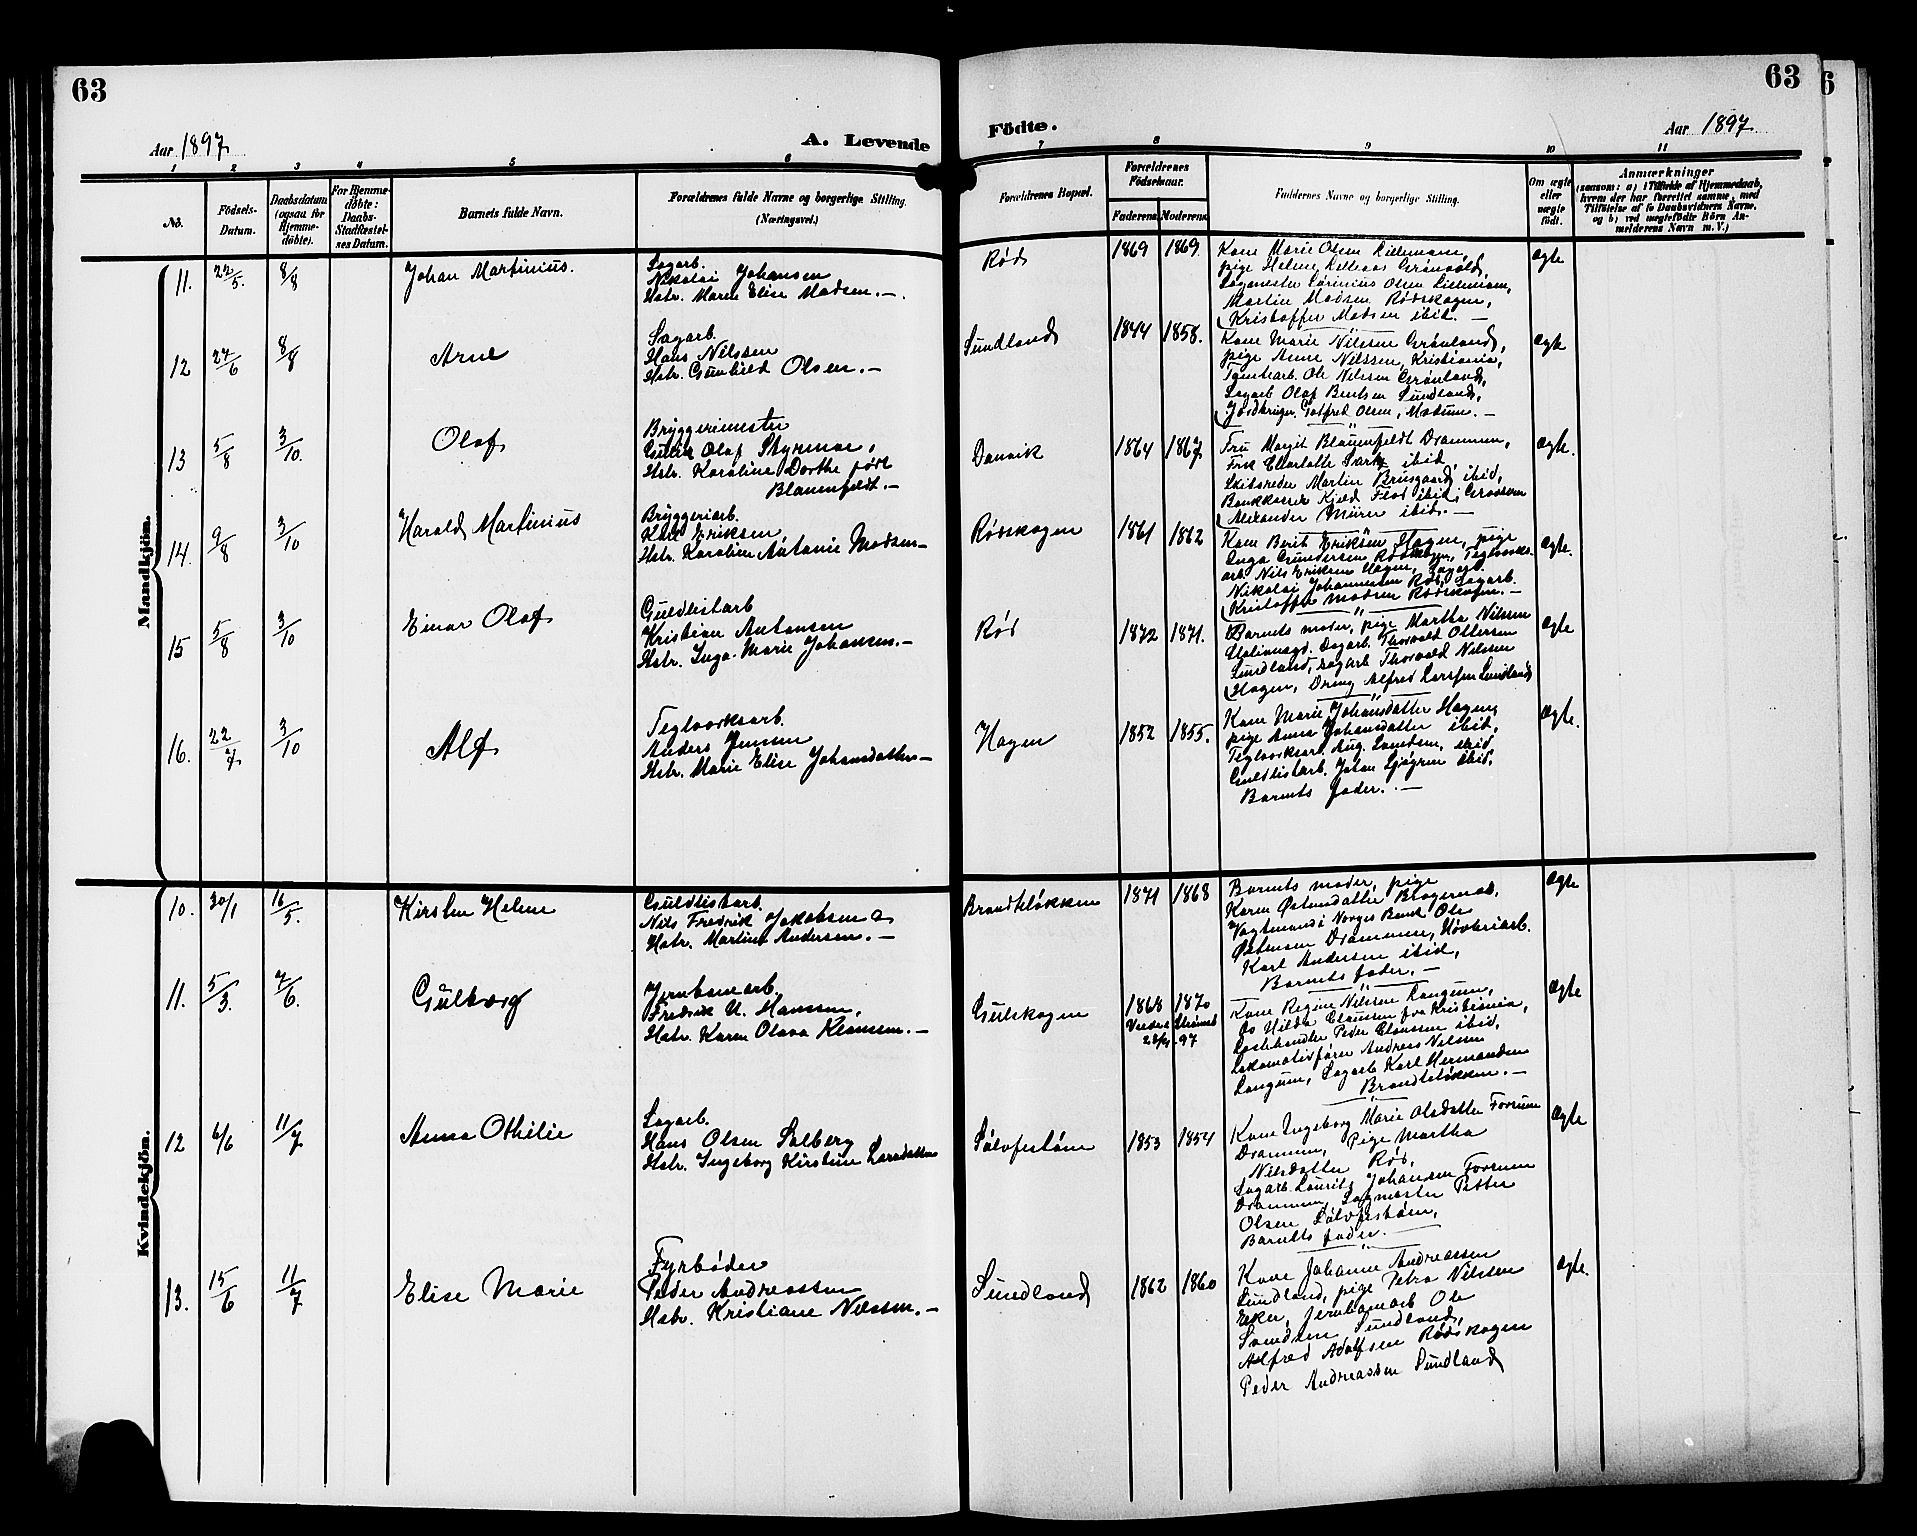 63
63
Aar 1897
A. Levende
Födte.
Aar 1897
1 2 3 4 5 6 7 8 9 10 11
No.
Födsels-
Datum.
Daabsdatum
(ogsaa for
Hjemme-
döbte).
For Hjemme-
döbte:
Daabs-
Stadfæstel-
ses Datum.
Barnets fulde Navn.
Forældrenes fulde Navne og borgerlige Stilling.
(Næringsvei.)
Forældrenes Bopæl.
Forældrenes
Födselsaar.
Faderens Moderens
Faddernes Navne og borgerlige Stilling.
Om ægte
eller
uægte
födt.
Anmærkninger
(saasom: a) i Tilfælde af Hjemmedaab,
hvem der har forrettet samme, med
Tilföielse af to Daabsvidners Navne,
og b) ved uægtefödte Börn An-
melderens Navn m. V.)
Mandkjön.
11. 22/5. 8/8
Johan Martinius.
Sagarb.
Nikolai Johansen
Hstr. Maren Elise Madsen. -
Rød
1869 1869
Kone Marie Olsen Lillemoen,
pige Helene Grönvold,
Sagmester Olsen Lillemoen,
Martin Madsen Rødskogen,
Kristoffer Madsen ibid. -
Ægte
12 27/6 8/8
Arne
Sagarb.
Hans Nilssen
Hstr. Gunhild Olsen. -
Sundland
1844 1858.
Kone Marie Nilssen Grönland,
pige Anne Nilssen, Kristiania,
Tomtearb. Ole Nilssen Grönland,
Sagarb Olaf Bentsen Sundland,
Gotfred Olsen, Modum. -
Ægte
13 5/8 3/10.
Olaf
Bryggerimester
Olaf Styrmoe,
Hstr. Karoline Dorthe född
Blauenfeldt. -
Danvik
1864 1867
Fru Margit Blauenfeldt Drammen,
Frk Charlotte ibid,
Skibsreder Martin Brusgaard, ibid,
Bankkasserer Kjeld ibid, Grosserer
Alexander ibid. -
Ægte.
14. 9/8 3/10
Harald Martinius
Bryggeriarb.
Karl Eriksen
Hstr. Karoline Antonie Madsen -
Rødskogen
1861 1862
Kone Berit Eriksen Hagen, pige
Inga Gundersen Rødskogen, Teglverks-
arb. Nils Eriksen Hagen, Sagarb.
Nikolai Johannesen Rød, Sagarb.
Kristoffer Madsen Rødskogen. -
Ægte.
15 5/8 3/10
Einar Olaf
Guldlistarb
Kristian Antonsen
Hstr. Inga Marie Johansen. -
Rød
1872 1871.
Barnets moder, pige Martha Nilssen
Sagarb. Thorvald Ottersen
Sundland, sagarb Thorvald Nilssen
Hagen, Dreng Alfred Larssen Sundland
Ægte
16. 22/7 3/10
Alf
Teglverksarb.
Anders Jensen
Hstr. Marie Elise Johansdatter -
Hagen
1852 1855.
Kone Marie Johansdatter Hagen,
pige Anna Johansdatter ibid,
Teglverksarb. Aug. Svendsen, ibid,
Guldlistarb. Johan Sjögren ibid,
Barnets fader. -
Ægte.
Kvindekjön.
10. 30/1 16/5.
Kirsten Helene
Guldlistarb.
Nils Fredrik Jakobsen o
Hstr. Martine Andersen. -
Brandtsløkken
1871 1868
Barnets moder, pige
Karen Østensdatter Bragernes,
Vagtmand i Norges Bank Ole
Østensen Drammen, Høvleriarb.
Karl Andersen ibid,
Barnets fader. -
Ægte
11. 5/3. 7/6.
Gulborg
Jernbanearb.
Fredrik U. Hanssen,
Hstr. Karen Olava Klausen. -
Gulskogen
1868 1870
Kone Regine Nilssen Langum,
do Hilda Claussen fra Kristiania,
Peder Claussen ibid,
Lokomotivfører Andreas Nilssen
Langum, Sagarb Karl Hermansen
Brandtsløkken. -
Ægte
12 6/6 11/7
Anna Othilie
Sagarb.
Hans Olsen Solberg
Hstr. Ingeborg Kirstine Larsdatter
Sølvfestøen
1853 1854
Kone Ingeborg Marie Olsdatter Forrum
Drammen, Pige Martha
Nilsdatter Rød,
Sagarb. Laurits Johansen Forrum
Drammen, Sagmester Petter
Olsen Sølvfestøen,
Barnets fader. -
Ægte
13. 15/6 11/7
Elise Marie
Fyrbøder
Peder Andreassen
Hstr. Kristiane Nilssen. -
Sundland
1862 1860
Kone Johanne Andreassen
Sundland, pige Petra Nilssen
Eker, Jernbanearb Ole
Svendsen Sundland,
Alfred Adolfsen Rødskogen
Peder Andreassen Sundland
Ægte.